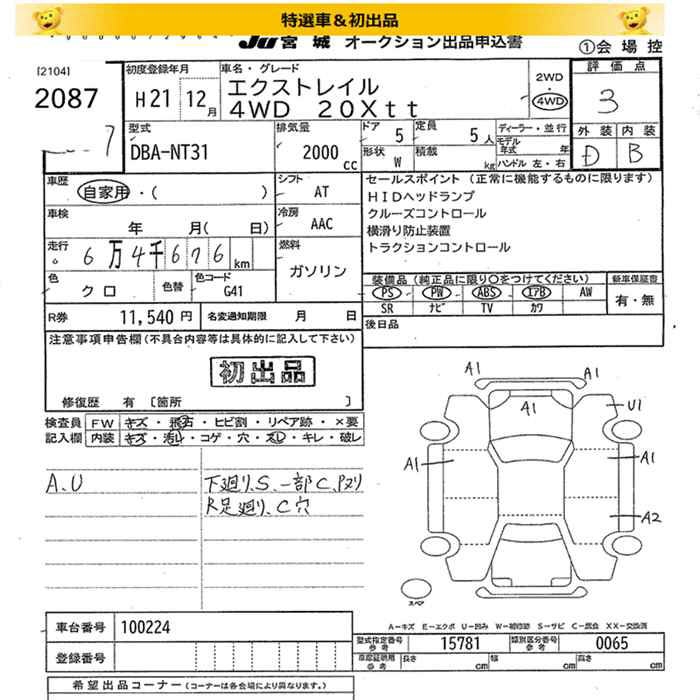 特選車＆初出品
JU宮城 オークション出品申込書
①会場控
[2104]
2087
初度登録年月
H21 12月
車名・グレード
エクストレイル
4WD 20Xtt
2WD
・
4WD
評価点
3
外装 内装
D B
型式
DBA-NT31
排気量
2000 cc
ドア 5
定員 5人
形状 W
積載 kg
ディーラー・並行
モデル年式 年
ハンドル 左・右
車歴
自家用・( )
シフト
AT
セールスポイント (正常に機能するものに限ります)
HIDヘッドランプ
クルーズコントロール
横滑り防止装置
トラクションコントロール
車検
年 月( 日)
冷房
AAC
走行
6万4千676km
燃料
ガソリン
色
クロ
色替
色コード
G41
装備品 (純正品に限り○をつけてください)
PS PW ABS エアB AW
SR ナビ TV カワ
新車保証書
有・無
R券 11,540円
名変通知期限 月 日
後日品
注意事項申告欄(不具合内容等は具体的に記入して下さい)
初出品
修復歴 有 [箇所 ]
検査員
記入欄
FW キズ・飛石・ヒビ割・リペア跡・×要
内装 キズ・汚レ・コゲ・穴・スレ・キレ・破レ
A.U
下廻り.S.一部C.
R足廻り.C穴
A1
A1
A1
U1
A1
A1
A2
スペア
A－キズ E－エクボ U－凹み W－補修跡 S－サビ C－腐食 XX－交換済
車台番号 100224
登録番号
型式指定番号
参考
15781
類別区分番号
参考
0065
車庫証明用
参考
長さ cm
幅 cm
高さ cm
希望出品コーナー (コーナーは各会場により異なります。)